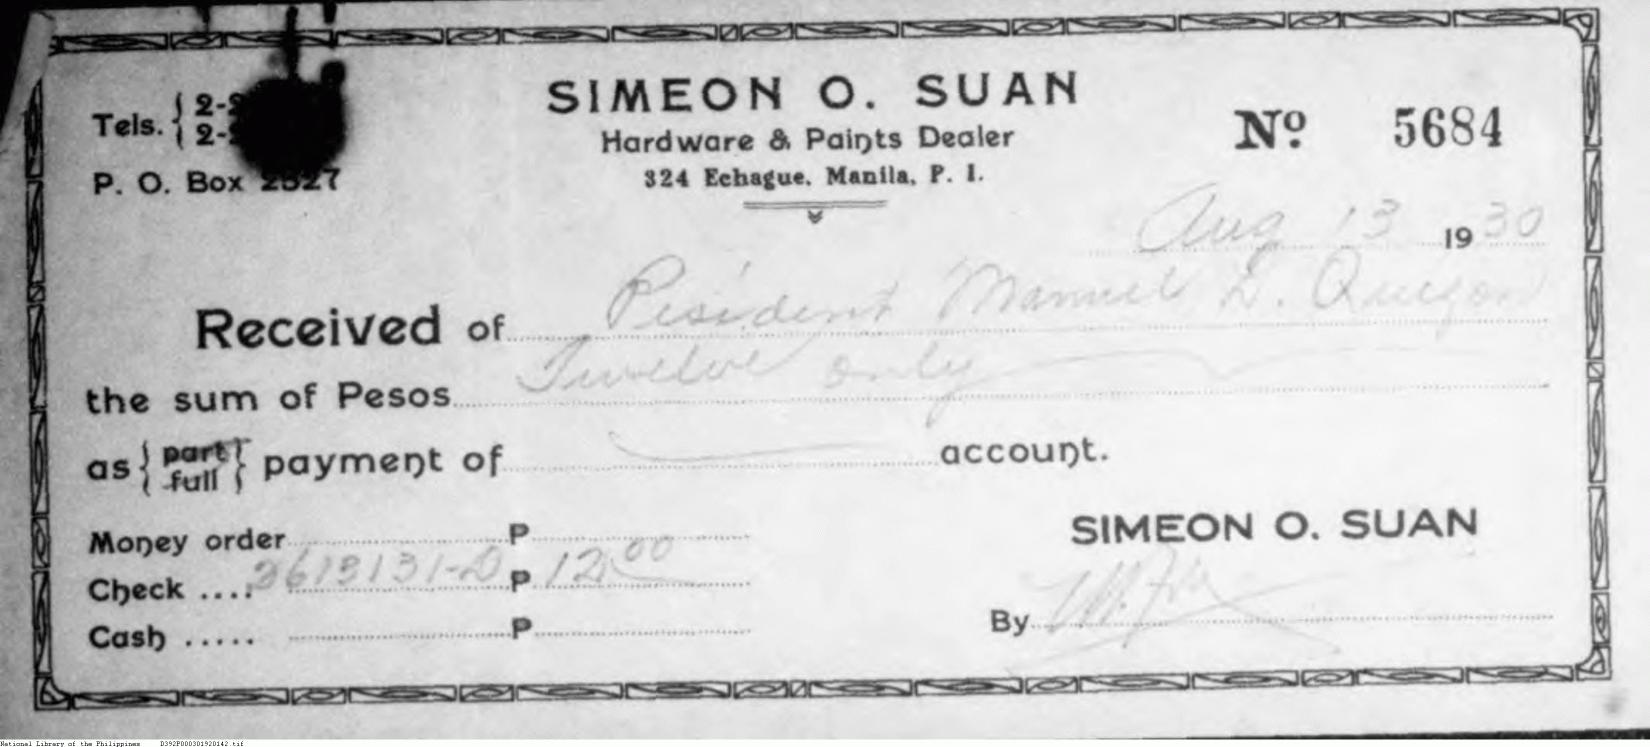 SIMEON O. SUAN
Hardware & Paints Dealer
324 Echague, Manila, P. I.
Tels. { 2-
2-
P. O. Box 2527
Nº 5684
Aug 13 1930
Received of President Manuel L. Quezon
the sum of Pesos Twelve only
as { part full } payment of account.
Money order P
Check .... 2613131-D P 12.00
Cash ..... P
SIMEON O. SUAN
By
National Library of the Philippines D392P000301920142.tif